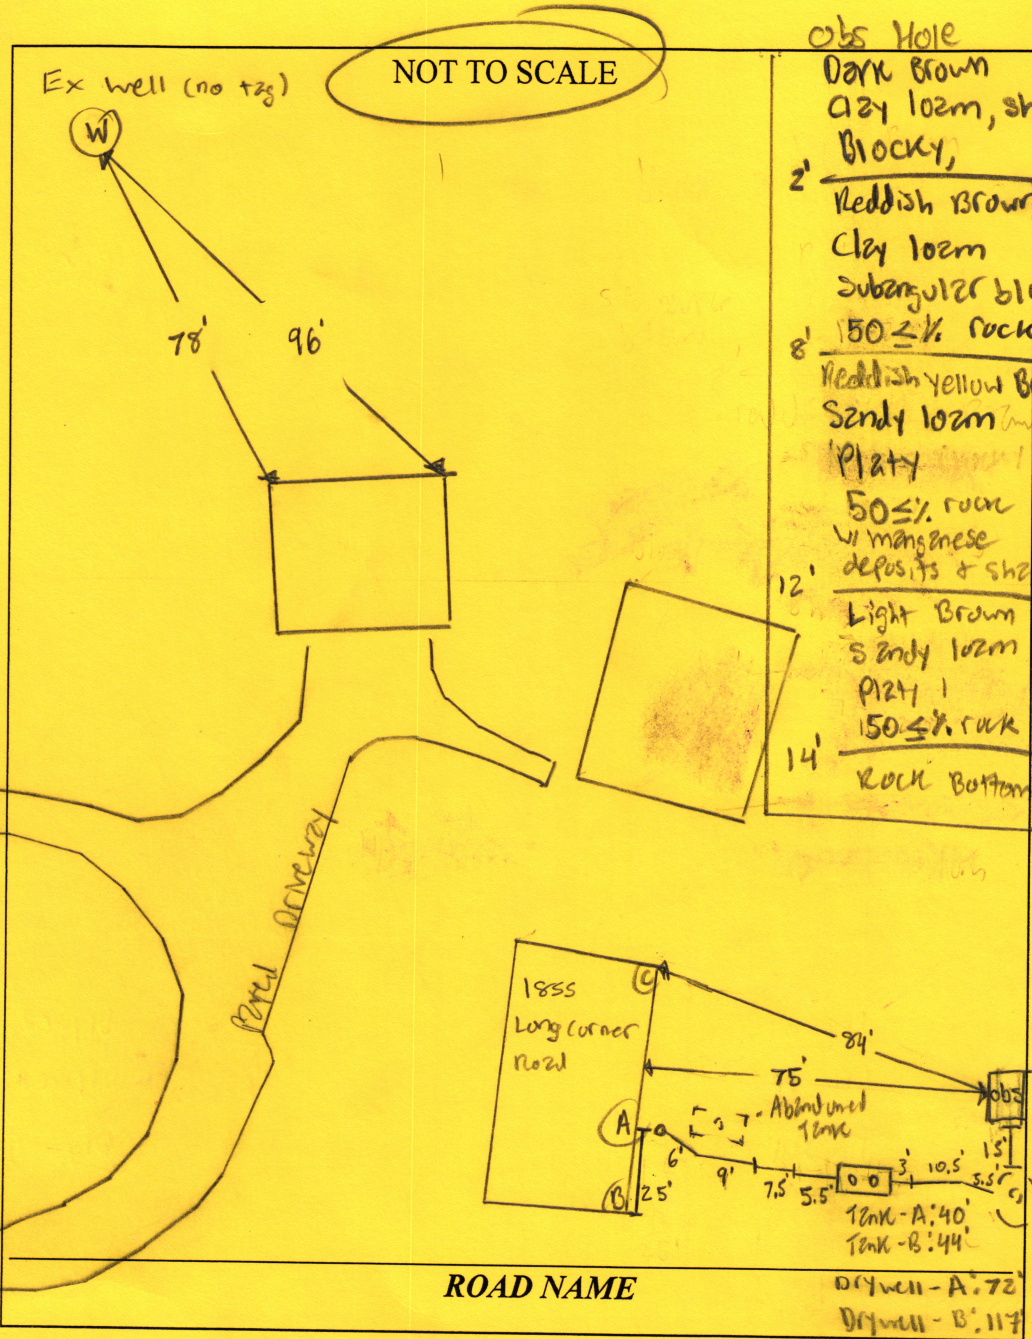 Obs Hole
NOT TO SCALE
Ex well (no tag)
W
Dark Brown
Clay loam, sh
Blocky,
2'
Reddish Brown
Clay loam
Subangular blo
150 ≤ % rock
8'
Reddish yellow Br
Sandy loam
Platy
50 ≤ % rock
w/ manganese
deposits + sha
12'
Light Brown
Sandy loam
Platy
150 ≤ % rock
14'
Rock Bottom
78'
96'
Paved Driveway
1855
Long Corner
Road
C
84'
75'
obs
Abandoned
Tank
A
6'
9'
7.5'
5.5'
3'
10.5'
5.5'
15'
B
25'
Tank-A: 40'
Tank-B: 44'
ROAD NAME
Drywell-A: 72'
Drywell-B: 117'